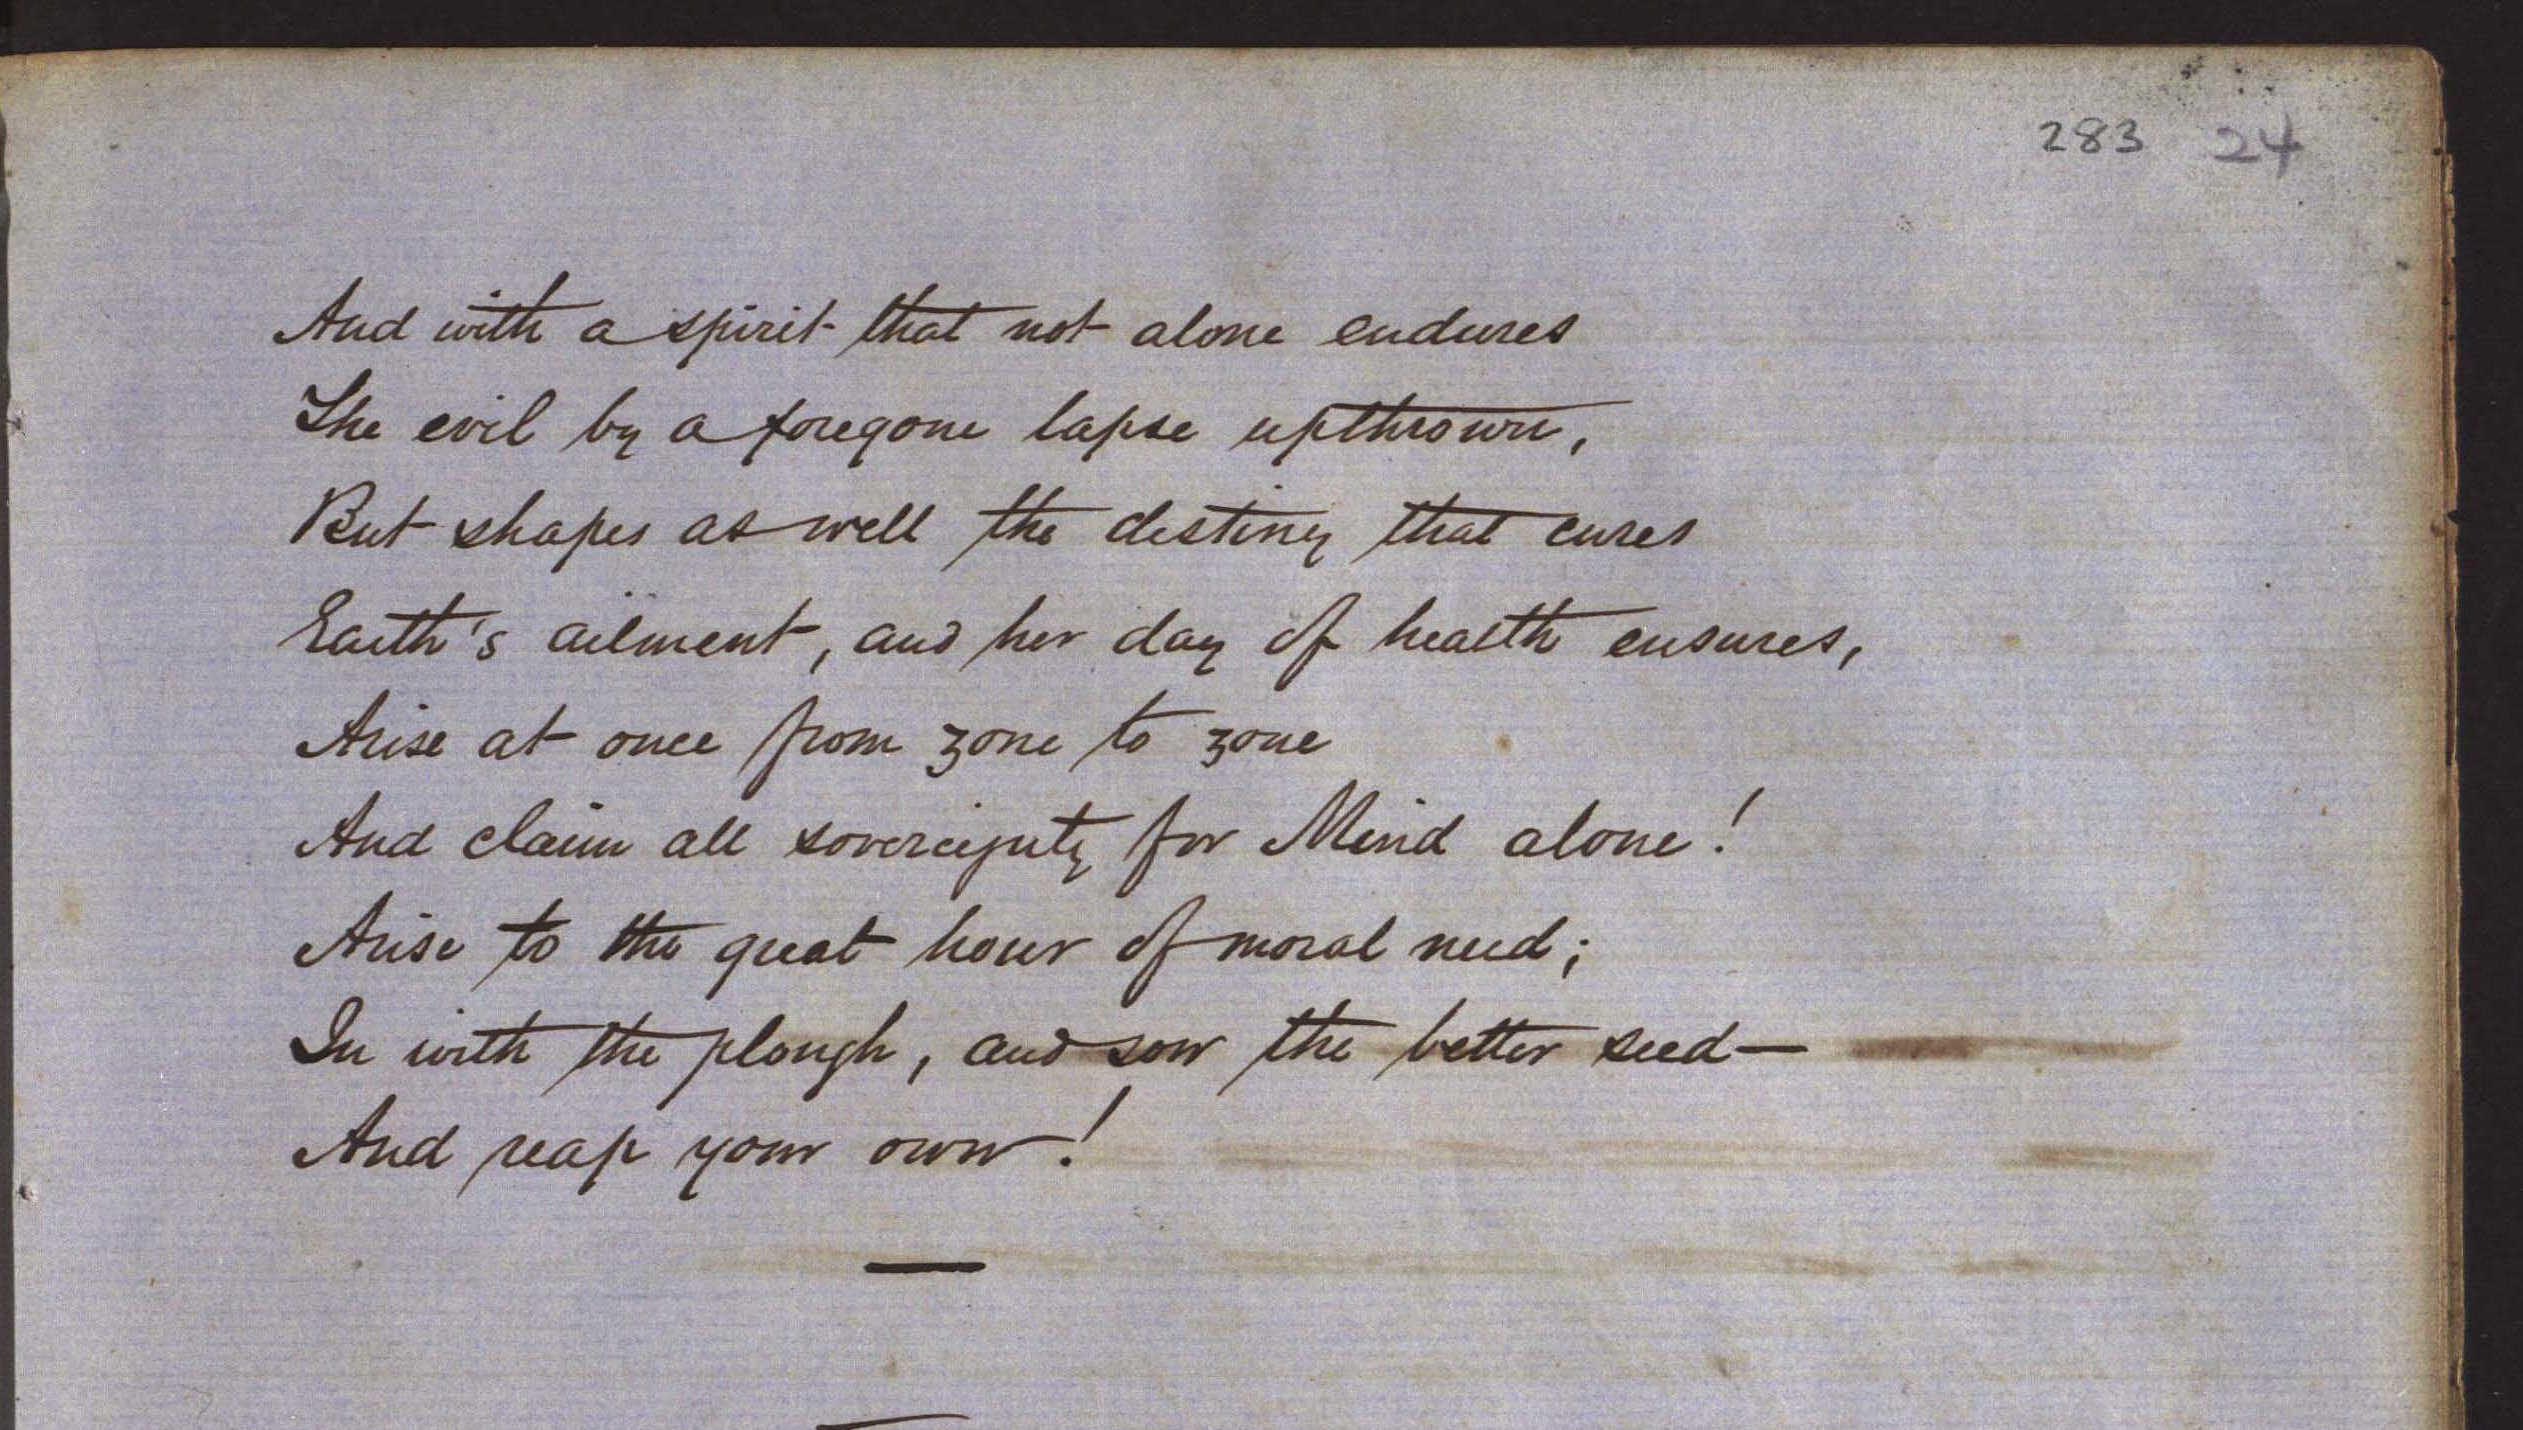 283 24
And with a spirit that not alone endures
The evil by a foregone lapse upthrown,
But shapes as well the destiny that cures
Earth's ailment, and her day of health ensures,
Arise at once from zone to zone
And claim all sovereignty for Mind alone!
Arise to the great hour of moral need;
In with the plough, and sow the better seed—
And reap your own!